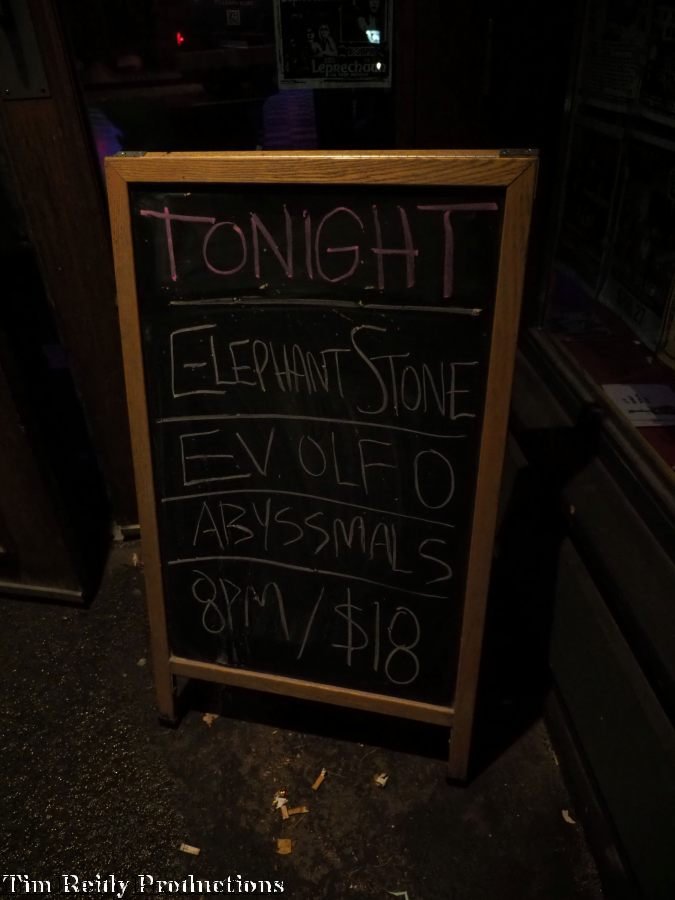 Leprechaun
TONIGHT
ELEPHANT STONE
EVOLFO
ABYSSMALS
8PM/$18
Tim Reidy Productions